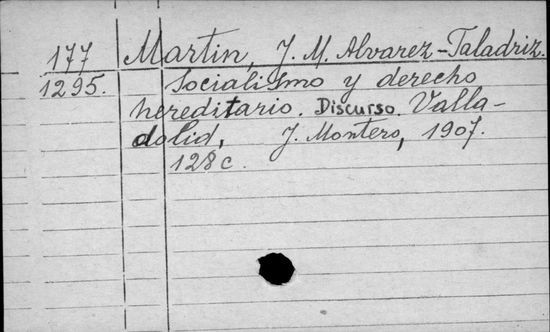 177 Martin, J. M. Alvarez-Taladriz.
1295. Socialismo y derecho
hereditario. Discurso. Valla-
dolid, J. Montero, 1907.
128 c.